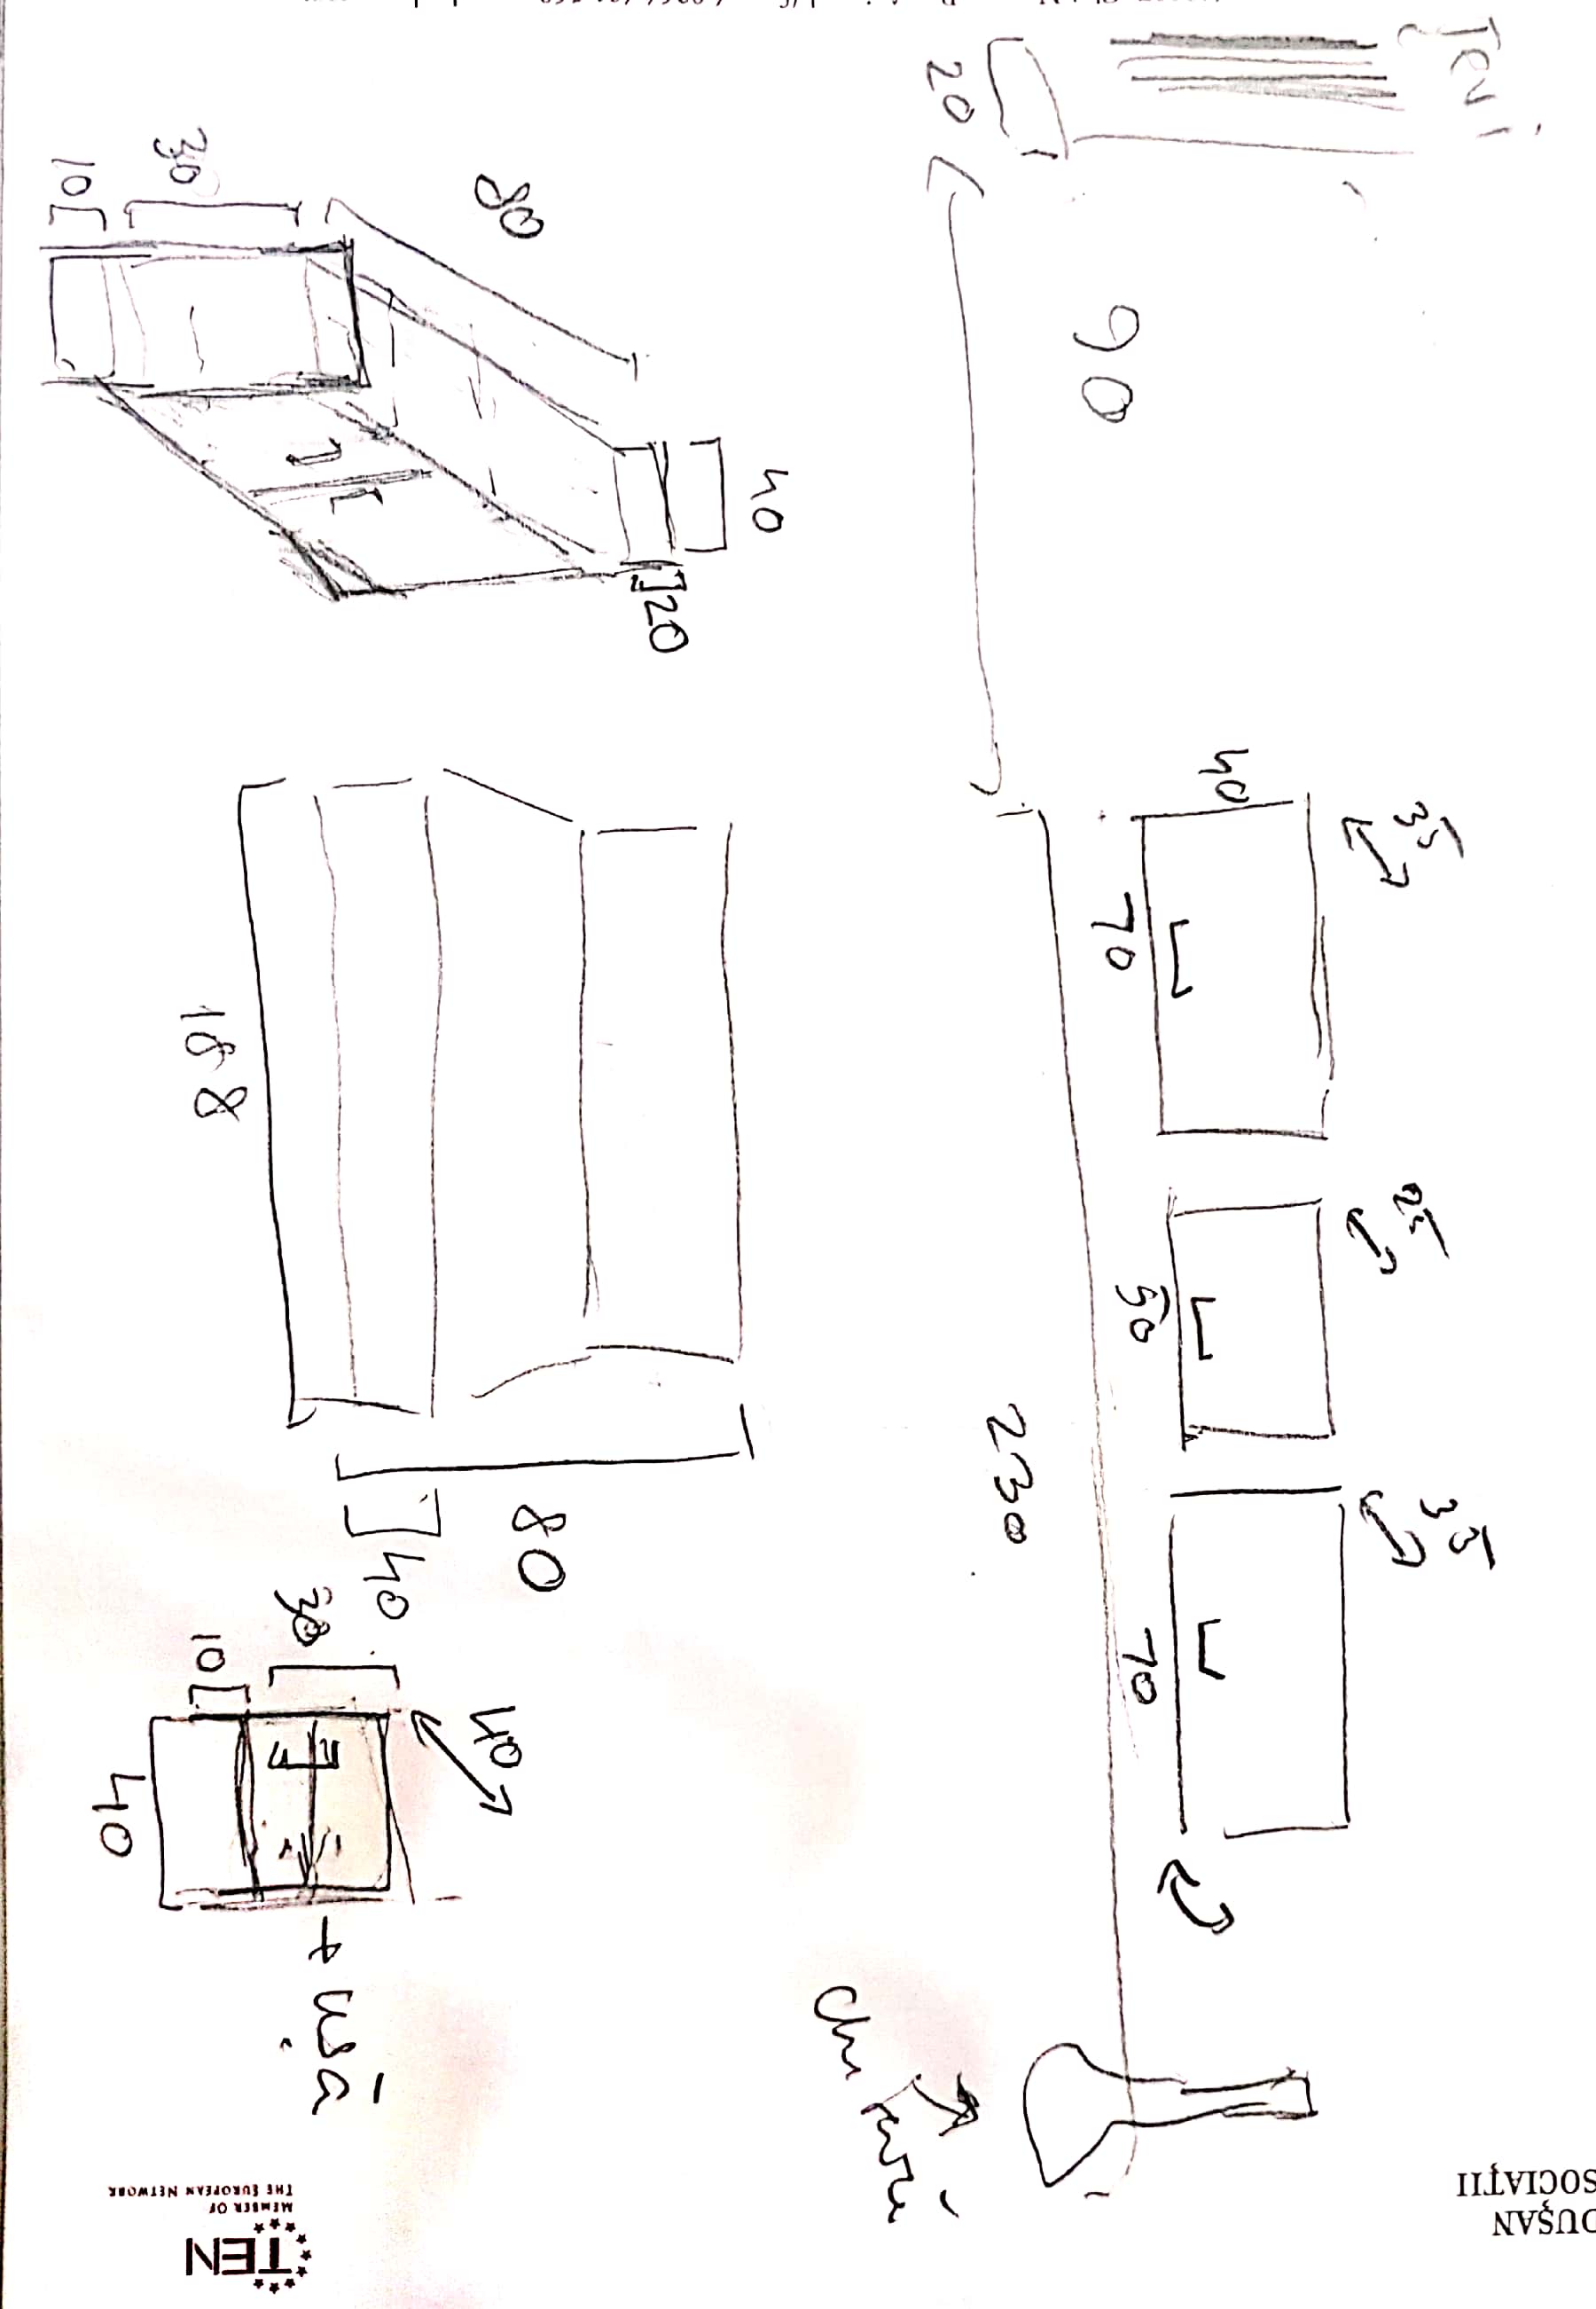 DUȘAN
SOCIAȚII
Țevi
35
25
35
40
70
50
70
90
20
230
chiuvetă
40
20
80
30
10
80
40
188
40
30
10
40
→ ușă
TEN
MEMBER OF
THE EUROPEAN NETWORK